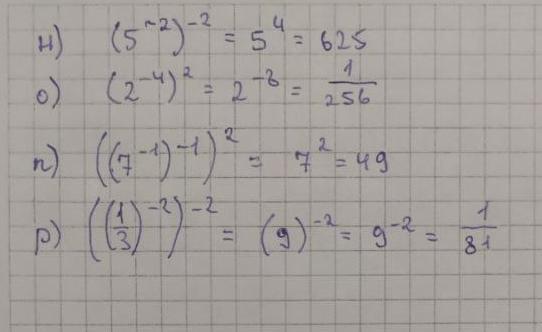 н) (5⁻²)⁻² = 5⁴ = 625
о) (2⁻⁴)² = 2⁻⁸ = 1/256
п) ((7⁻¹)⁻¹)² = 7² = 49
р) ((1/3)⁻²)⁻² = (9)⁻² = 9⁻² = 1/81